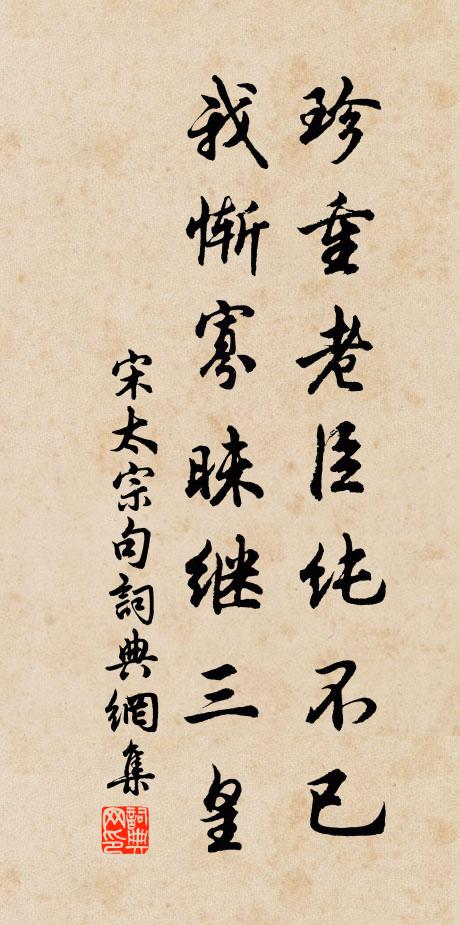 珍重老臣纯不已
我惭寡昧继三皇
宋太宗句詞典網集
詞典网印